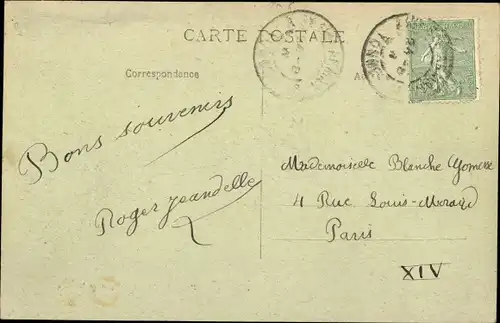 CARTE POSTALE
Correspondance
Bons souvenirs
Roger Jeandelle
Mademoiselle Blanche Gomez
4 Rue Louis-Morard
Paris
XIV